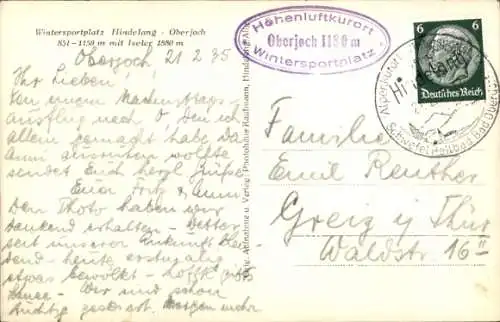 Wintersportplatz Hindelang - Oberjoch
851-1150 m mit Iseler 1880 m
Höhenluftkurort
Oberjoch 1180 m
Wintersportplatz
6 6
Deutsches Reich
Alpenkurort
Hindelang
Schwefelheilbad Bad Oberdorf
Oberjoch 21 2 35
Ihr Lieben
Von einem Nachmittags-
Ausflug nach O den ich
allein gemacht habe da
Anni ausruhen wollte
sendet Euch herzl Grüße
Euer Fritz & Anni
Den Photo haben wir
dankend erhalten - Wetter
seit unserer Ankunft
- heute erstmalig
etwas bewölkt - hofft gibts
- Wir sind schon
tüchtig Morgen mehr
Orig. Aufnahme u. Verlag: Photohaus Kaufmann, Hindelang/Allg.
Familie
Emil Reuther
Greiz i/ Thür
Waldstr. 16 II